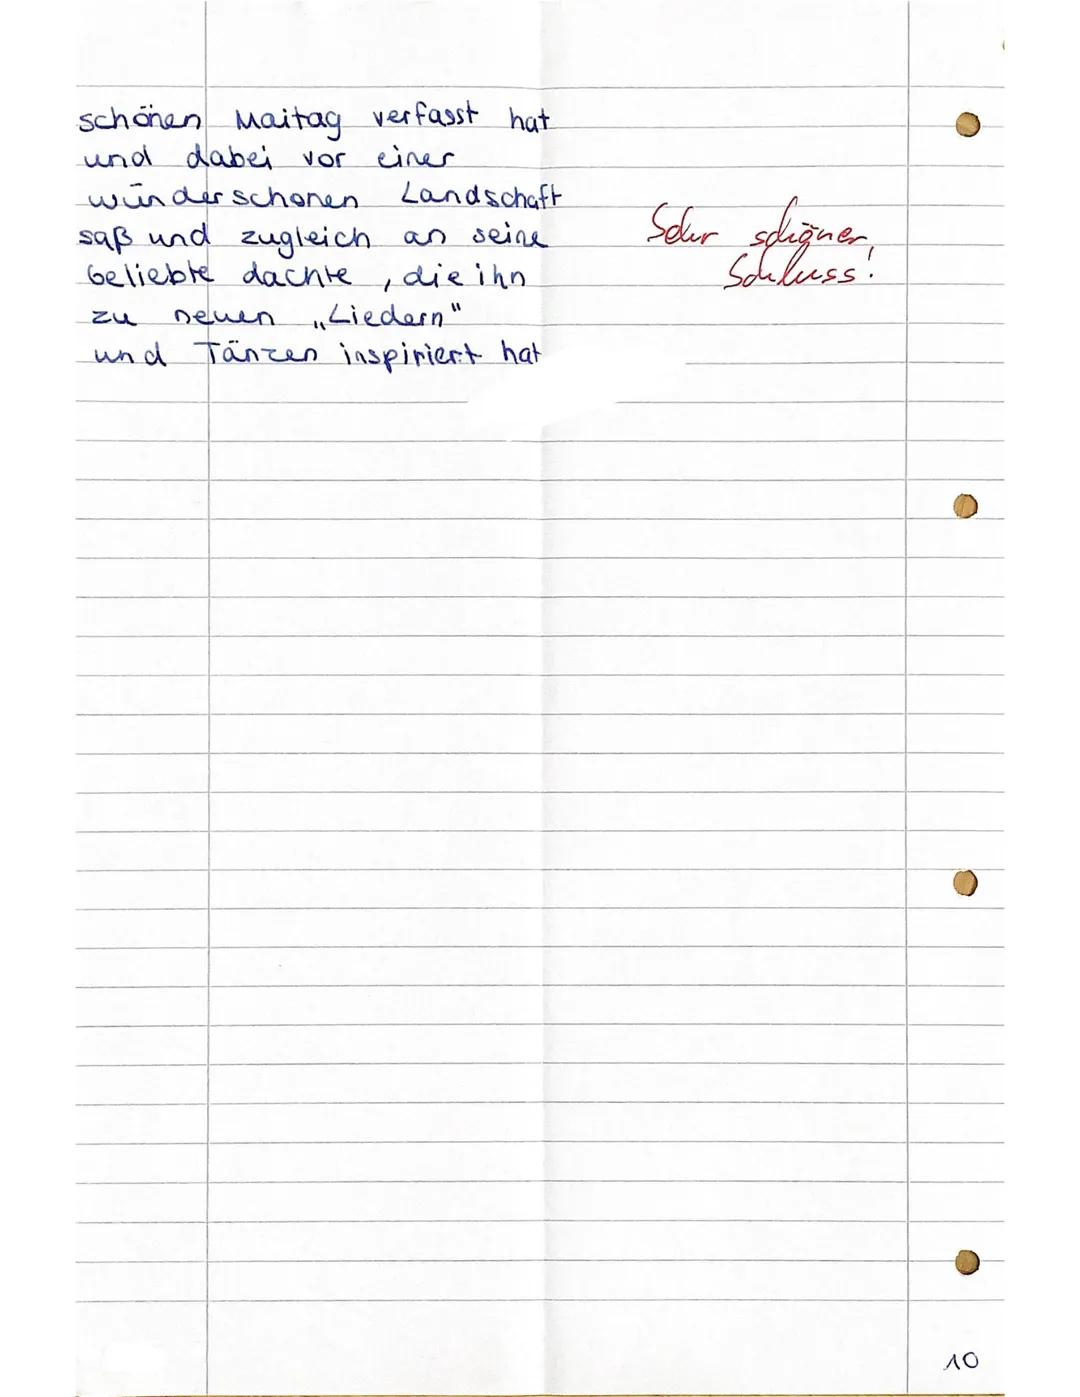 schönen Maitag verfasst hat
und dabei vor einer
wünderschonen Landschaft
saß und zugleich an seine
Geliebte dachte, die ihn
zu neuen „Liedern“
und Tänzen inspiriert hat
Sehr schöner
Schluss!
10